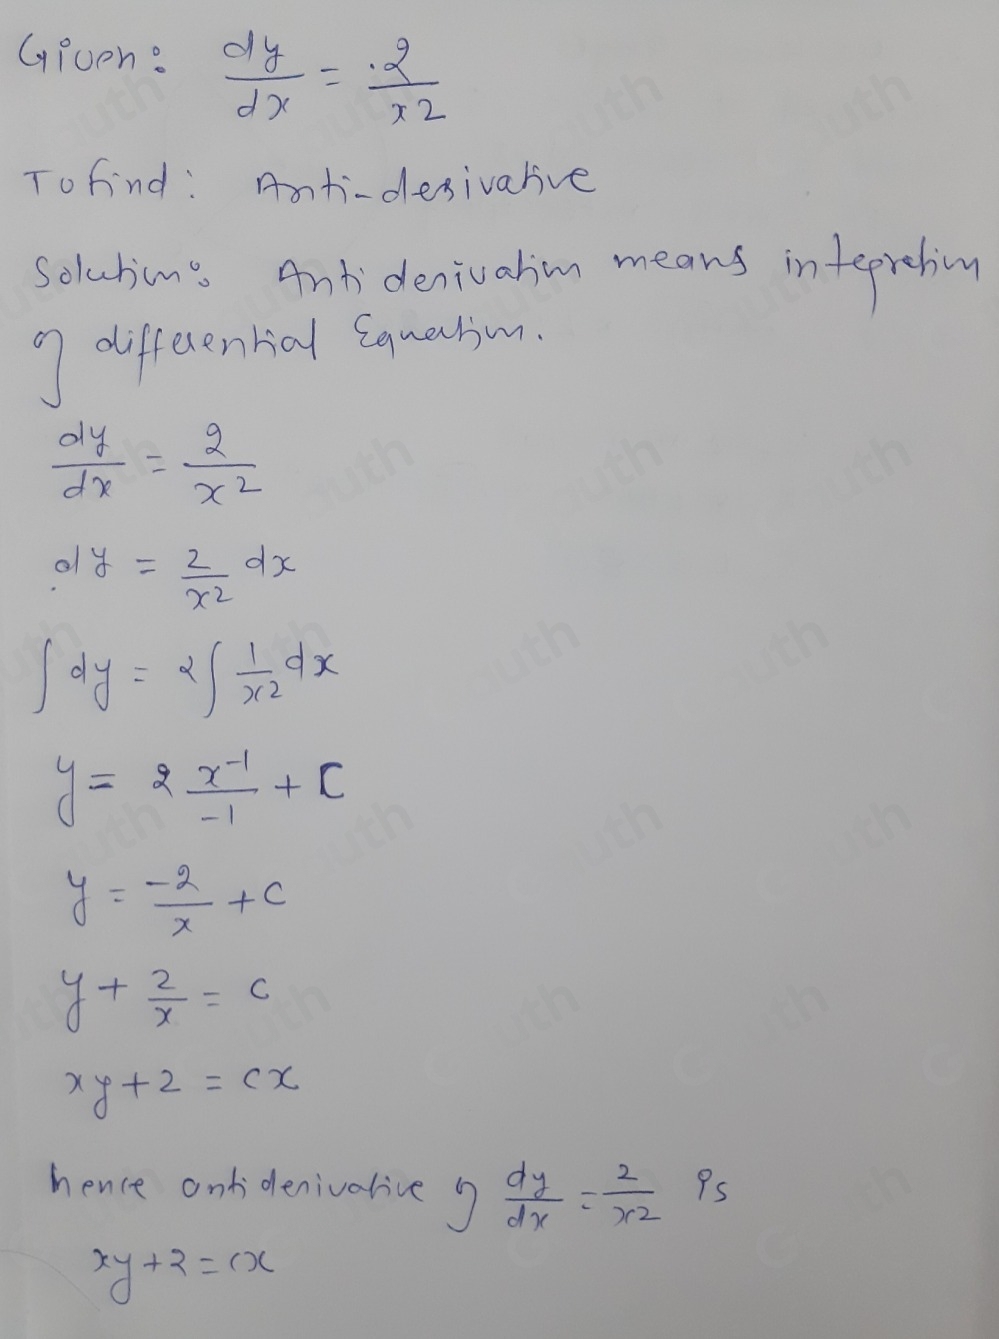 Given: dy/dx = 2/x2
To find: Anti-derivative
Solution: Anti derivation means integration
of differential Equation.
dy/dx = 2/x2
dy = 2/x2 dx
∫ dy = 2∫ 1/x2 dx
y = 2 x^-1/-1 + C
y = -2/x + C
y + 2/x = C
xy + 2 = cx
hence anti derivative of dy/dx = 2/x2 is
xy + 2 = cx